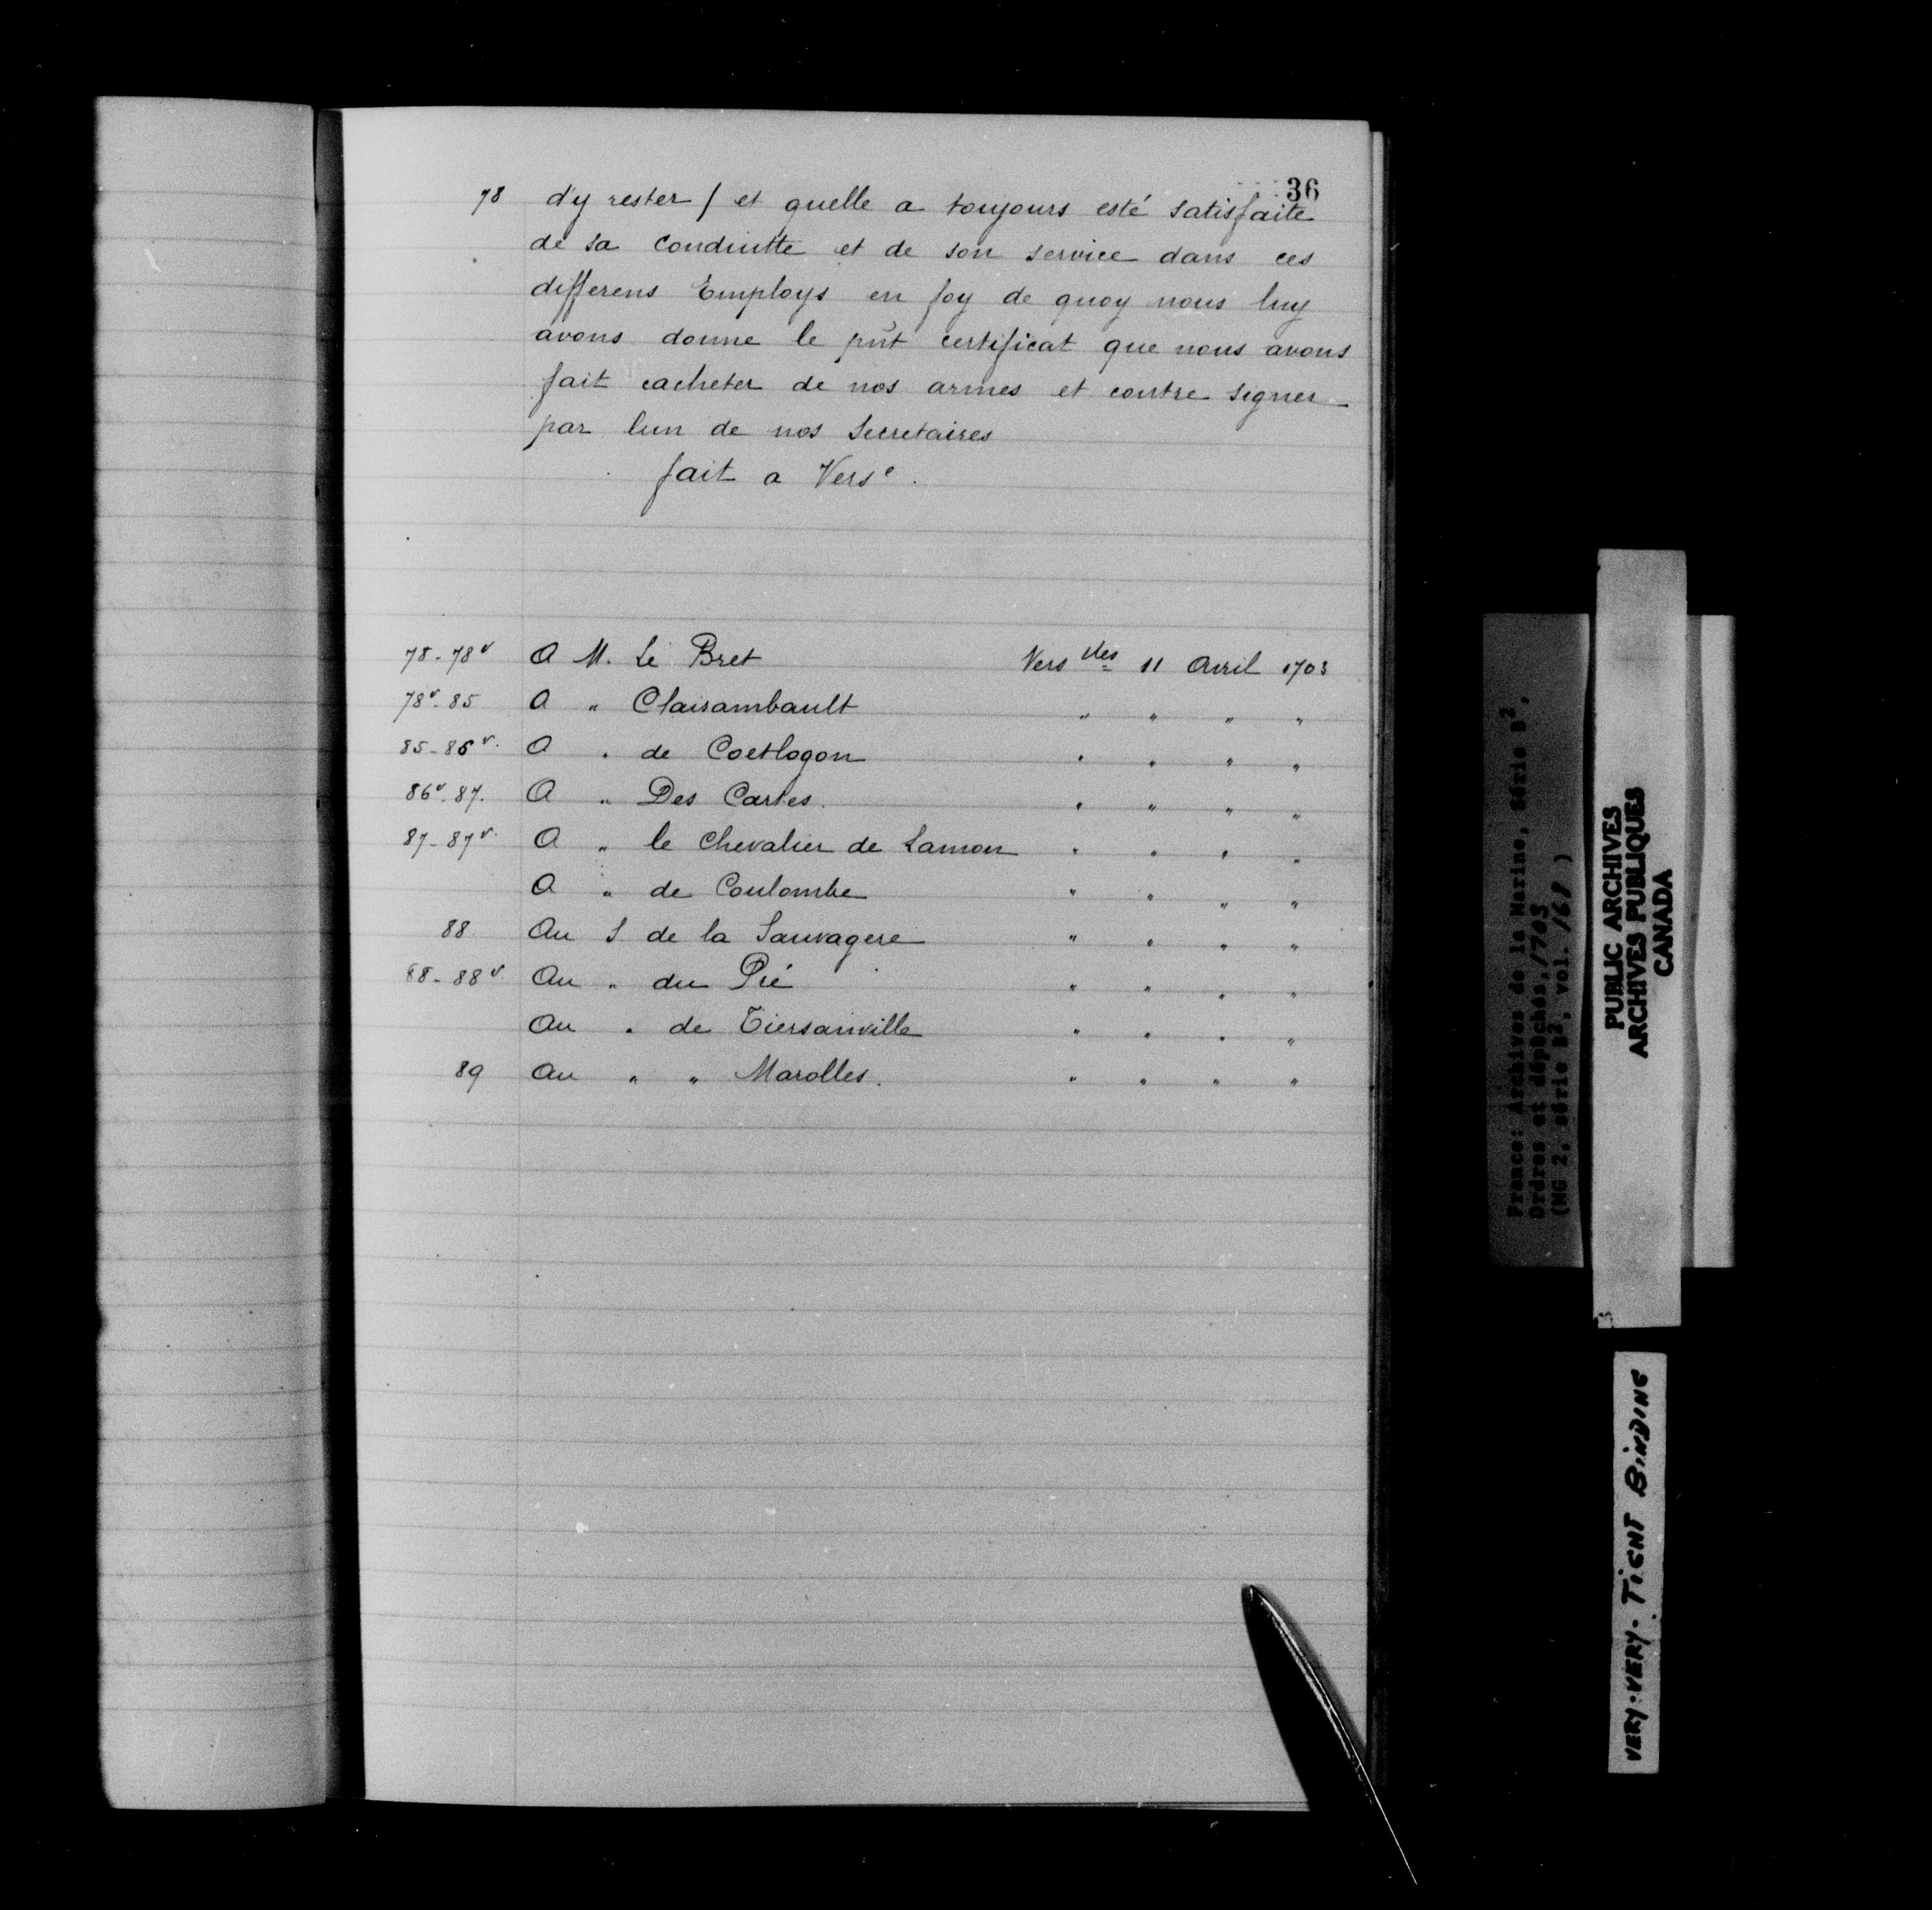 36
78 d'y rester / et quelle a toujours esté satisfaite
de sa conduitte et de son service dans ces
differens Employs en foy de quoy nous luy
avons donne le pñt certificat que nous avons
fait cacheter de nos armes et contre signer
par lun de nos Secretaires
fait a Versᵉ.
78-78ᵛ A M. Le Bret Versˡˡᵉˢ 11 Avril 1703
78ᵛ-85 A " Clairambault " " " "
85-86ᵛ. A " de Coetlogon " " " "
86ᵛ.87. A " Des Cartes. " " " "
87-87ᵛ. A " le Chevalier de Lamon " " " "
A " de Coulombe " " " "
88 Au S de la Sauvagere " " " "
88-88ᵛ Au " du Pré " " " "
Au " de Tiersanville " " " "
89 Au " " Marolles. " " " "
France: Archives de la Marine, Série B²,
Ordres et dépêches, 1703
(MG 2, série B², vol. 168)
PUBLIC ARCHIVES
ARCHIVES PUBLIQUES
CANADA
VERY-VERY-TIGHT BINDING